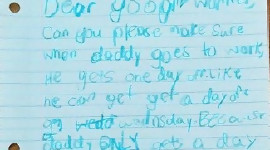 Dear google
Can you please make sure
when daddy goes to work,
He gets one day off. LIKe
he can get get a day off
on wednsday. BEcause
Daddy oNLY gets a day